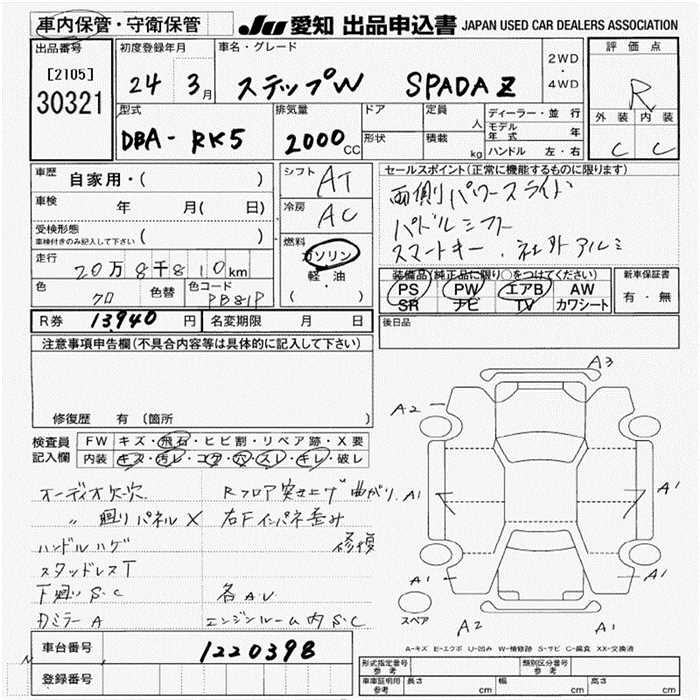 車内保管・守衛保管
JU 愛知 出品申込書 JAPAN USED CAR DEALERS ASSOCIATION
出品番号
[2105]
30321
初度登録年月
24 3月
車名・グレード
ステップW SPADA Z
2WD・4WD
評価点
R
外装 内装
C C
型式
DBA-RK5
排気量
2000cc
ドア
形状
定員 人
積載 kg
ディーラー・並行
モデル年式 年
ハンドル 左・右
車歴 自家用・( )
車検 年 月( 日)
受検形態
車検付きのみ記入して下さい ( )
走行 20万8千810km
色 クロ
色替
色コード PB81P
シフト AT
冷房 AC
燃料
ガソリン
軽・油
( )
セールスポイント(正常に機能するものに限ります)
両側パワースライド
パドルシフト
スマートキー、社外アルミ
装備品(純正品に限り○をつけてください)
PS PW エアB AW
SR ナビ TV カワシート
新車保証書
有・無
R券 13,940円
名変期限 月 日
後日品
注意事項申告欄(不具合内容等は具体的に記入して下さい)
修復歴 有 (箇所 )
検査員記入欄
FW キズ・飛石・ヒビ割・リペア跡・X要
内装 キズ・汚レ・コゲ・穴・スレ・キレ・破レ
オーディオ欠次 Rフロア突き上げ曲がり
〃 廻りパネルX 右Fインパネ歪み
ハンドルハゲ 修復
スタッドレスT
下廻りS・C 各A.U
Dミラー A エンジンルーム内S・C
A3
A2
A1 A1
A1 A1
A2 A1
スペア
A-キズ E-エクボ U-凹み W-補修跡 S-サビ C-腐食 XX-交換済
車台番号 1220398
登録番号
型式指定番号 参考
類別区分番号 参考
車庫証明用 参考 長さ cm 幅 cm 高さ cm